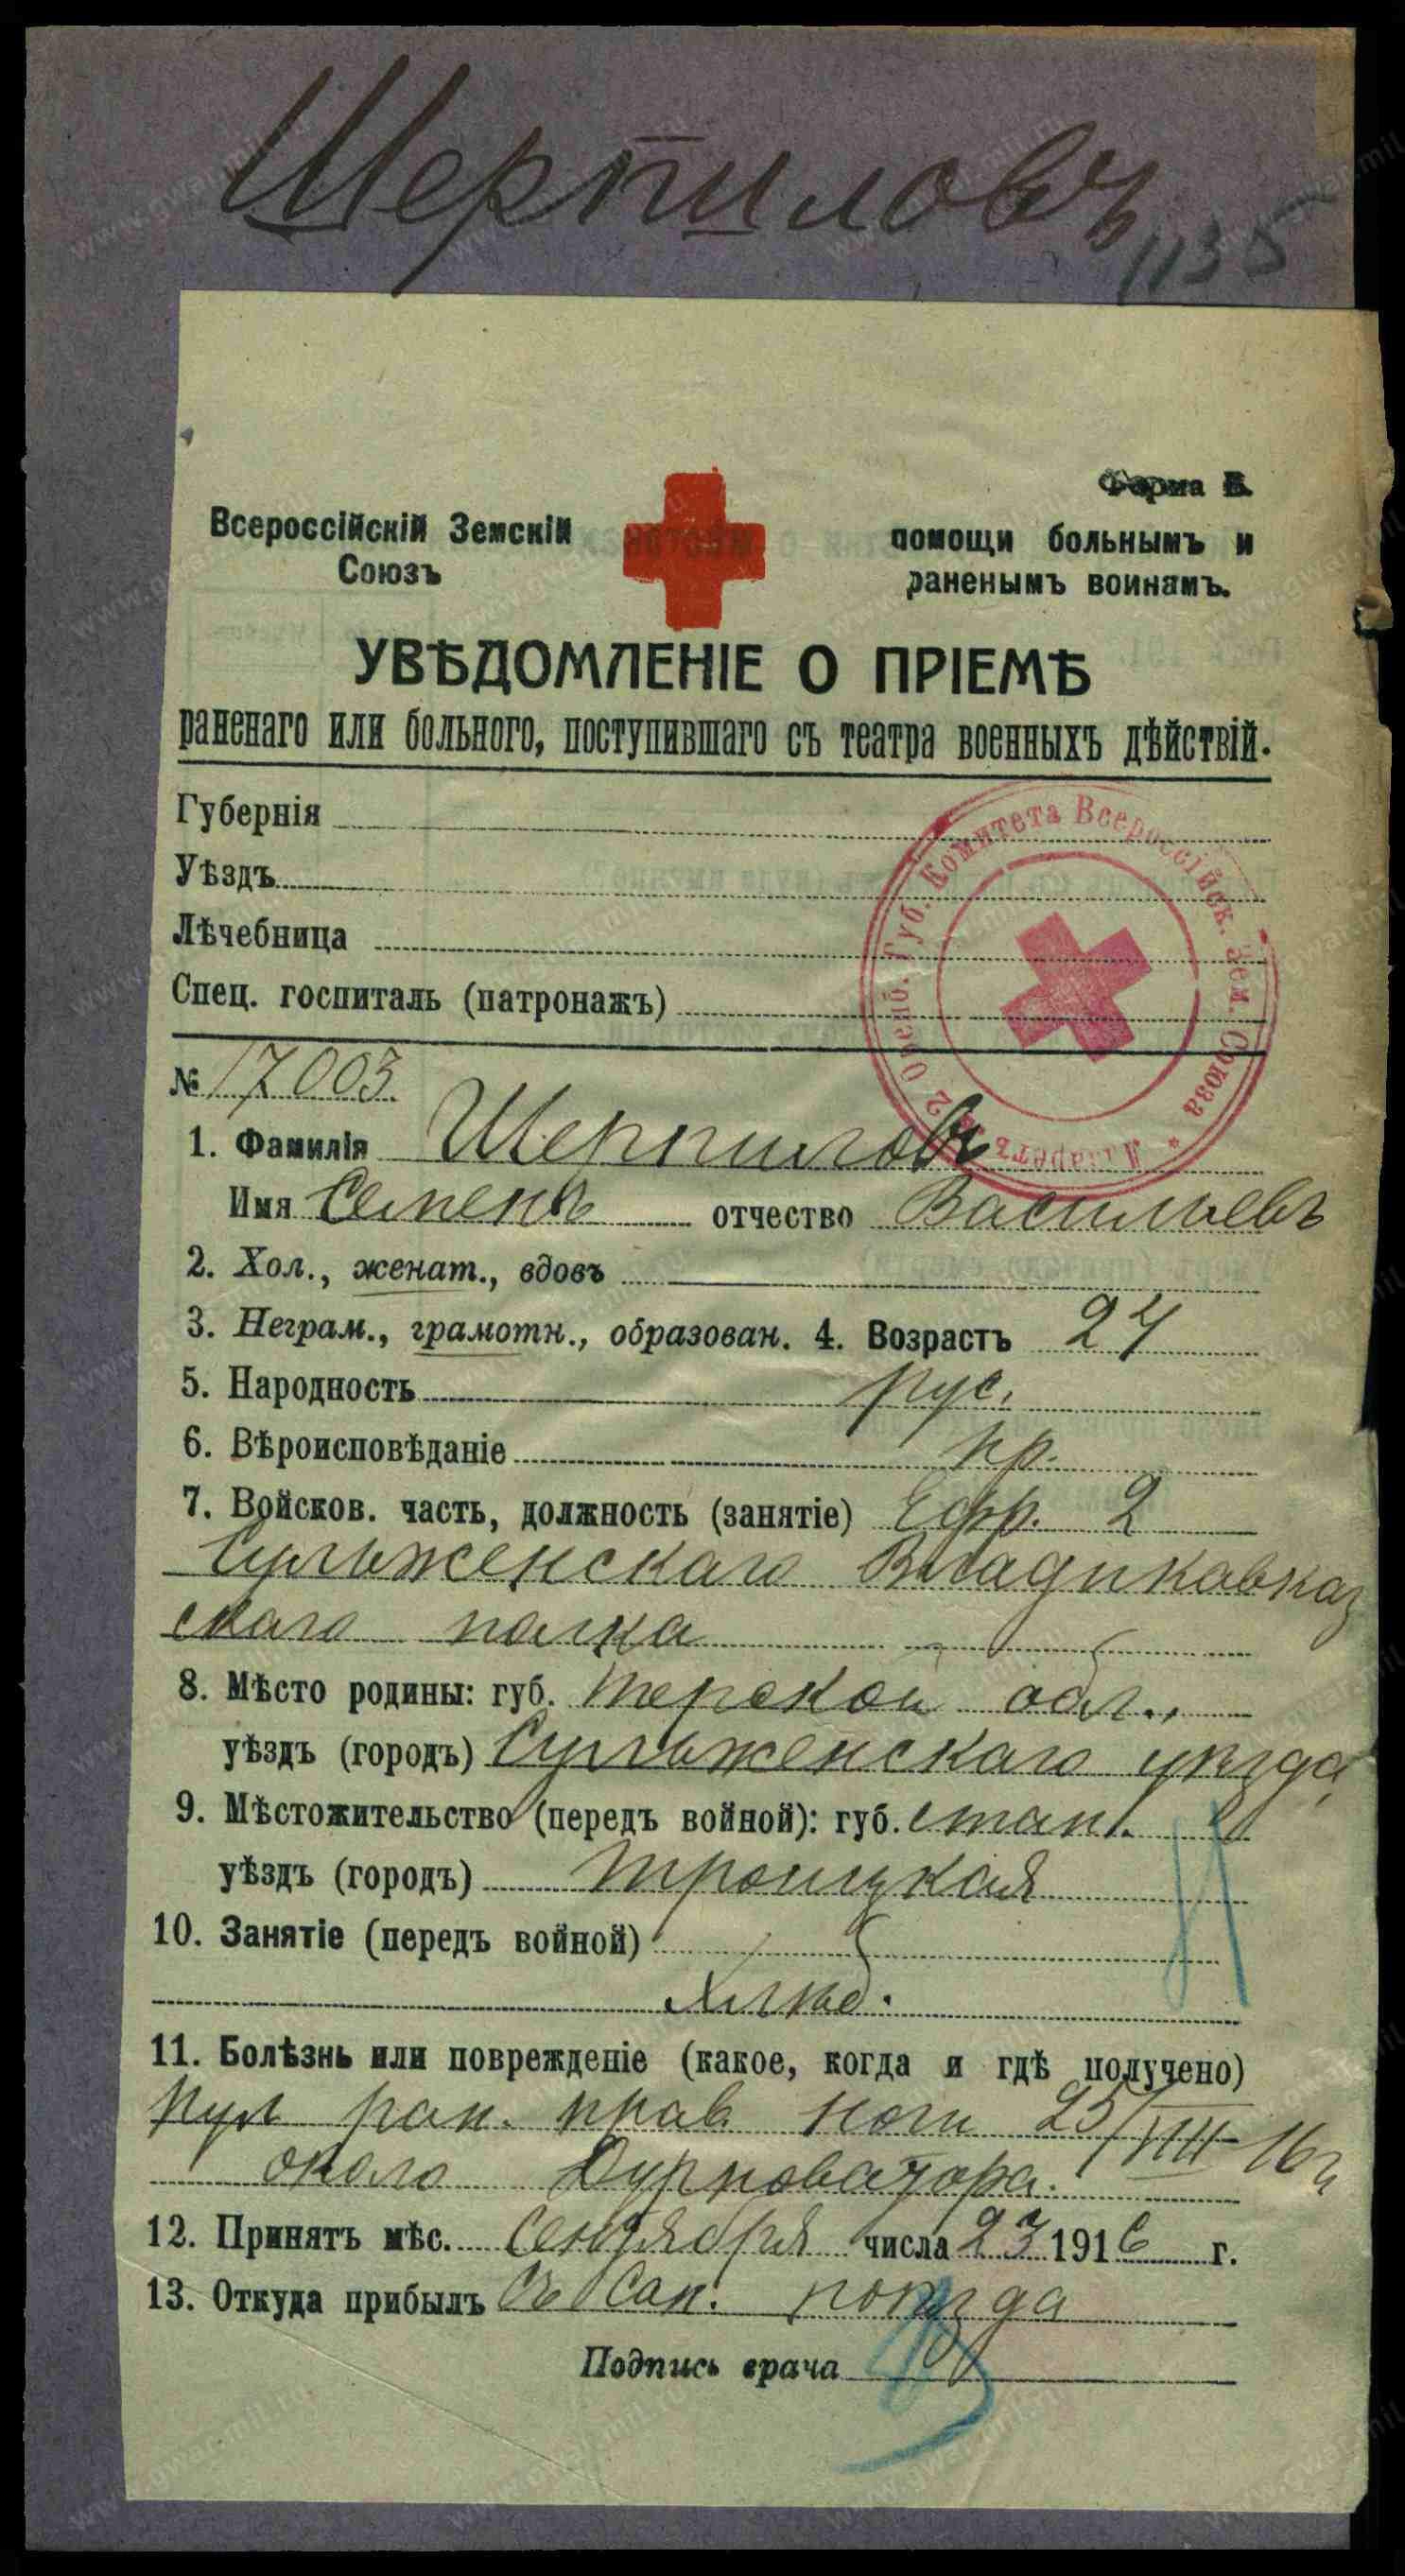 Шерпиловъ
1135
Форма В.
Всероссійскій Земскій Союзъ
помощи больнымъ и раненымъ воинамъ.
УВѢДОМЛЕНІЕ О ПРІЕМѢ
раненаго или больного, поступившаго съ театра военныхъ дѣйствій.
Губернія
Уѣздъ
Лѣчебница
Спец. госпиталь (патронажъ)
2 Оренб. Губ. Комитета Всероссійск. Зем. Союза * Лазаретъ
№ 17003.
1. Фамилія Шерпиловъ
Имя Семенъ отчество Васильевъ
2. Хол., женат., вдовъ
3. Неграм., грамотн., образован. 4. Возрастъ 24
5. Народность рус.
6. Вѣроисповѣданіе пр.
7. Войсков. часть, должность (занятіе) Ефр. 2
Сулъженскаго Владикавказ
скаго полка
8. Мѣсто родины: губ. Терской обл.,
уѣздъ (городъ) Сулъженскаго уѣзда,
9. Мѣстожительство (передъ войной): губ. стан.
уѣздъ (городъ) Троицкая
10. Занятіе (передъ войной)
Хлѣб.
11. Болѣзнь или поврежденіе (какое, когда и гдѣ получено)
пул ран. прав. ноги 25/VIII-16 г
около
12. Принятъ мѣс. Сентября числа 23 1916 г.
13. Откуда прибылъ Съ Сан. поѣзда
Подпись врача
www.gwar.mil.ru